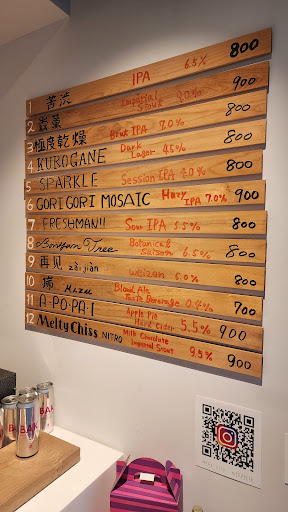 1 苦渋 IPA 6.5% 800
2 Imperial Stout 9.0% 900
3 極度乾燥 Brut IPA 7.0% 800
4 KUROGANE Dark Lager 4.5% 800
5 SPARKLE Session IPA 4.0% 800
6 GORI GORI MOSAIC Hazy IPA 7.0% 900
7 FRESHMAN!! Sour IPA 5.5% 800
8 Bonfam Tree Botanical Saison 6.5% 800
9 再见 zàijiàn Weizen 5.0% 800
10 Blond Ale Taste Beverage 0.4% 700
11 A·PO·PA·I Apple Pie Hard Cider 5.5% 900
12 Melty Chiss NITRO Milk Chocolate Imperial Stout 9.5% 900
BAK
BAK